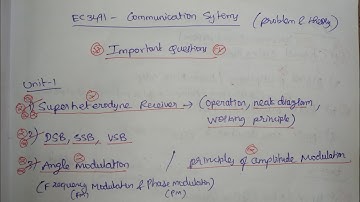 EC3491 - Communication Sytems (problem & theory)
Important Questions
Unit-1
1) Superheterodyne Receiver → (operation, neat diagram,
working principle)
2) DSB, SSB, VSB
3) Angle modulation / principles of amplitude Modulation
(Frequency Modulation & Phase modulation)
(FM) (PM)